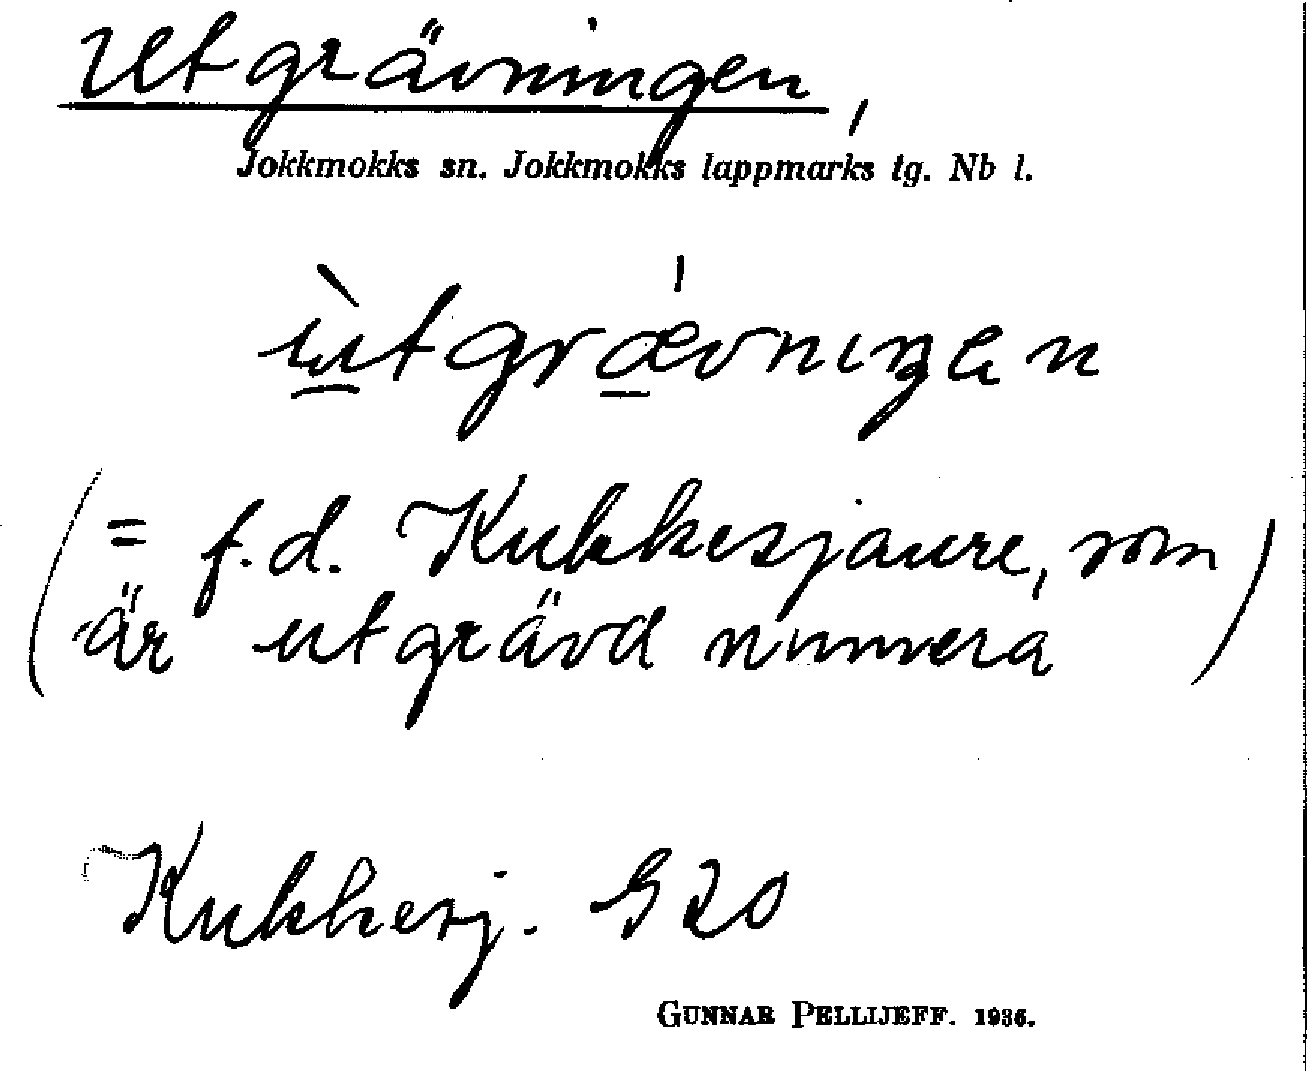 Utgrävningen,
Jokkmokks sn. Jokkmokks lappmarks tg. Nb l.
ùtgrævniŋen
(= f.d. Kukkesjaure, som
är utgrävd numera)
Kukkesj. S 20
GUNNAR PELLIJEFF. 1936.